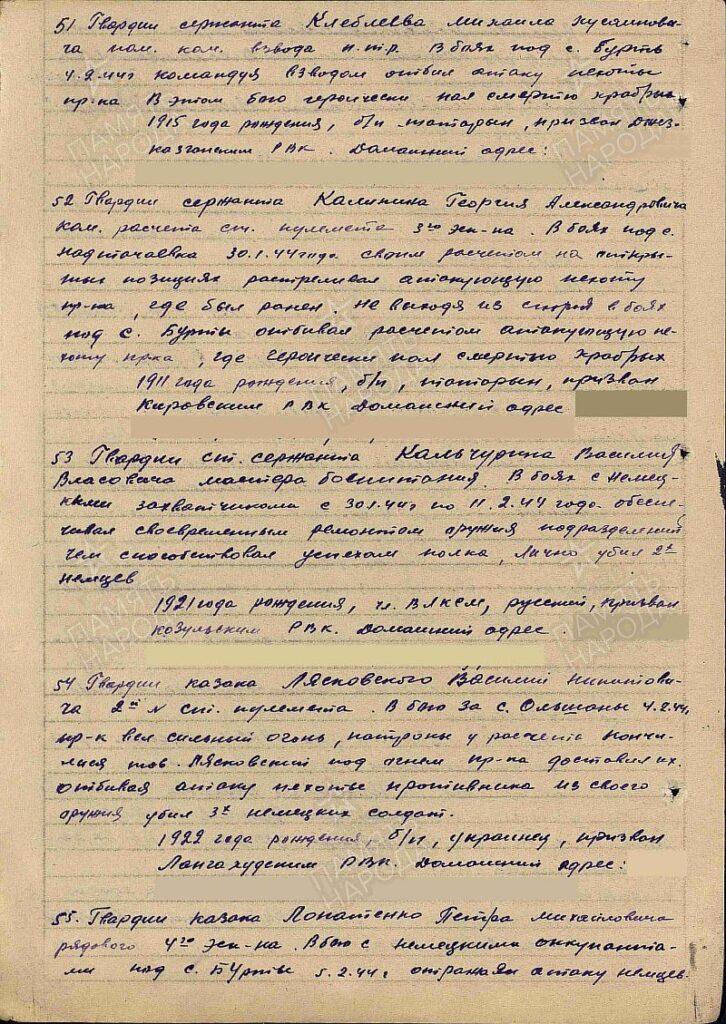 51 Гвардии сержанта Клеблеева Михаила Хусаинови-
ча пом. ком. взвода п.т.р. В боях под с. Бурты
4.2.44г командуя взводом отбил атаку пехоты
пр-ка В этом бою героически пал смертью храбрых
1915 года рождения, б/п татарин, призван Джез-
казганским РВК. Домашний адрес:
52 Гвардии сержанта Калинина Георгия Александровича
ком. расчета ст. пулемета 3го эск-на. В боях под с.
Надточаевка 30.1.44 года своим расчетом на откры-
тых позициях расстреливал атакующую пехоту
пр-ка, где был ранен. Не выходя из строя в боях
под с. Бурты отбивал расчетом атакующую пе-
хоту пр-ка, где героически пал смертью храбрых
1911 года рождения, б/п, татарин, призван
Кировским РВК Домашний адрес
53 Гвардии ст. сержанта Кальчурина Василия
Власовича мастера боепитания. В боях с немец-
кими захватчиками с 30.1.44г по 11.2.44 года обеспе-
чивал своевременным ремонтом оружия подразделений
чем способствовал успехам полка, лично убил 2х
немцев
1921 года рождения, чл. ВЛКСМ, русский, призван
Козульским РВК. Домашний адрес.
54 Гвардии казака Лясковского Василий Никитови-
ча 2й N ст. пулемета. В бою за с. Ольшаны 4.2.44г
пр-к вел сильный огонь, патроны у расчета кончи-
лися тов. Лясковский под огнем пр-ка доставил их.
отбивая атаку пехоты противника из своего
оружия убил 3х немецких солдат.
1922 года рождения, б/п, украинец, призван
РВК. Домашний адрес:
55. Гвардии казака Лопатенко Петра Михайловича
рядового 4го эск-на. В бою с немецкими оккупанта-
ми под с. Бурты 5.2.44г отражая атаку немцев
ПАМЯТЬ НАРОДА